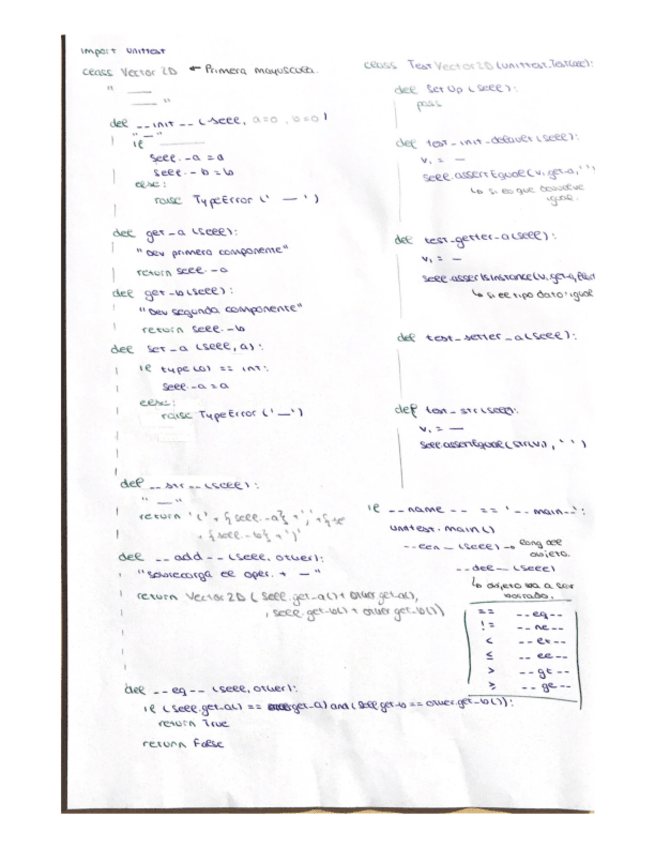 import unittest
class Vector2D ← Primera mayuscula.
" —
— "
def __init__(self, a=0, b=0)
" — "
if
self._a = a
self._b = b
else:
raise TypeError(' — ')
def get_a (self):
"Dev primera componente"
return self._a
def get_b(self):
"Dev segunda componente"
return self._b
def set_a (self, a):
if type(a) == int:
self._a = a
else:
raise TypeError('—')
def __str__(self):
" — "
return '(' + {self._a} + ',' + {se
+ {self._b} + ')'
def __add__(self, other):
"sobrecarga el oper. + —"
return Vector2D ( self.get_a() + other.get_a(),
, self.get_b() + other.get_b())
def __eq__ (self, other):
if (self.get_a() == other.get_a) and (self.get_b == other.get_b()):
return True
return False
class TestVector2D (unittest.TestCase):
def SetUp (self):
pass
def test_init_default (self):
v1 = —
self.assertEqual(v1.get_a, ' ',
↳ si lo que devuelve
igual.
def test_getter_a(self):
v1 = —
self.assertIsInstance(v1.get_a,
↳ si el tipo dato igual
def test_setter_a(self):
def test_str(self):
v1 = —
self.assertEqual(str(v1), ' ')
if __name__ == '__main__':
unittest.main()
__len__(self) → long del
objeto.
__del__(self)
↳ objeto va a ser
borrado.
== __eq__
!= __ne__
< __lt__
≤ __le__
> __gt__
≥ __ge__